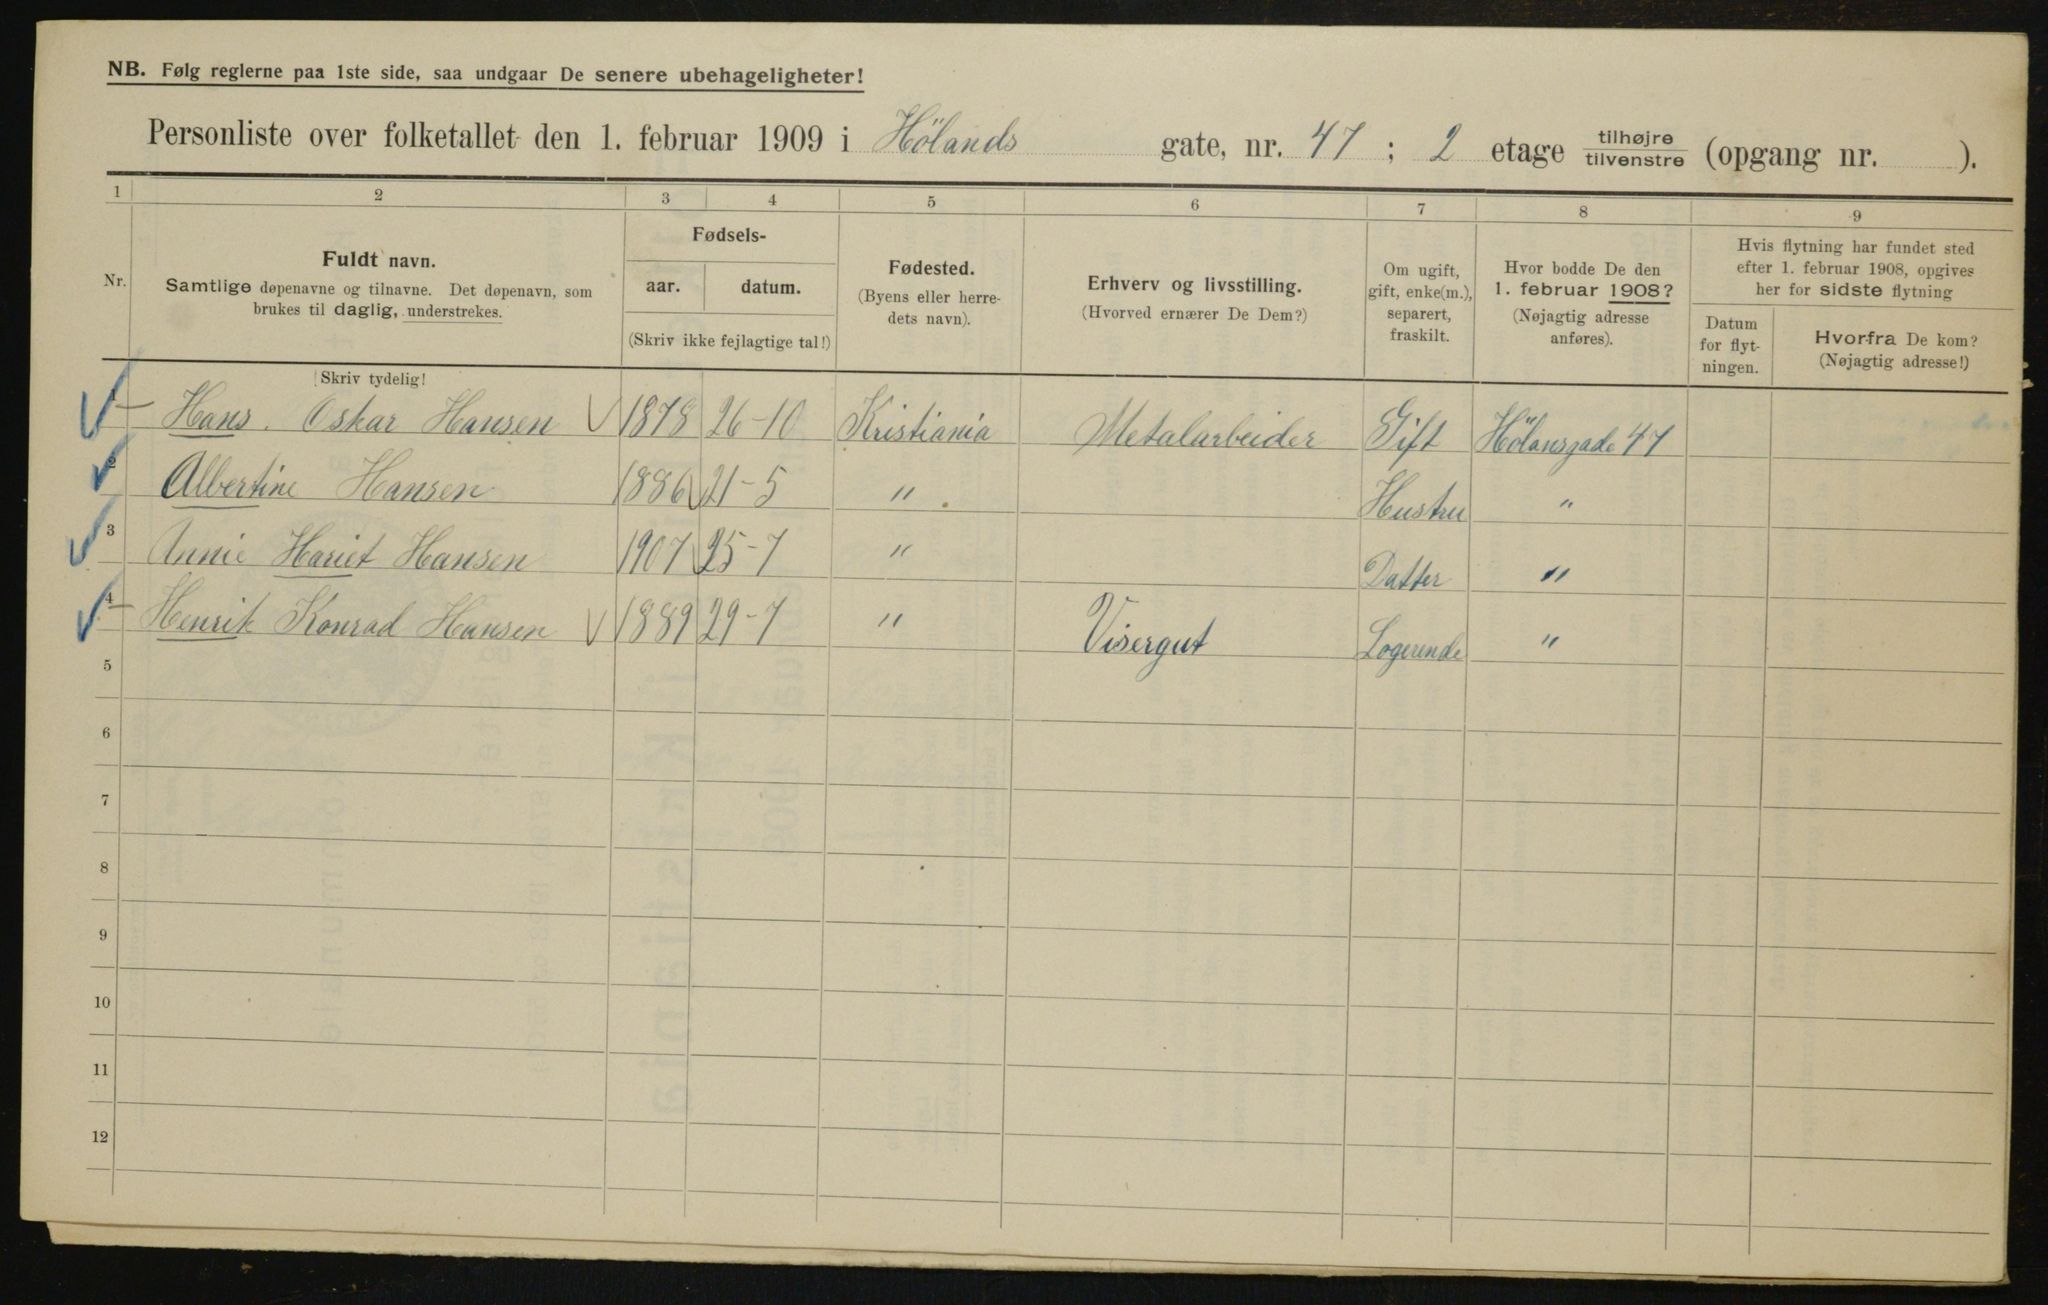 NB. Følg reglerne paa 1ste side, saa undgaar De senere ubehageligheter!
Personliste over folketallet den 1. februar 1909 i Hölands gate, nr. 47 ; 2 etage tilhøjre tilvenstre (opgang nr. ).
1 2 3 4 5 6 7 8 9
Nr.
Fuldt navn.
Samtlige døpenavne og tilnavne. Det døpenavn, som
brukes til daglig, understrekes.
Skriv tydelig!
Fødsels-
aar. datum.
(Skriv ikke fejlagtige tal!)
Fødested.
(Byens eller herre-
dets navn).
Erhverv og livsstilling.
(Hvorved ernærer De Dem?)
Om ugift,
gift, enke(m.),
separert,
fraskilt.
Hvor bodde De den
1. februar 1908?
(Nøjagtig adresse
anføres).
Hvis flytning har fundet sted
efter 1. februar 1908, opgives
her for sidste flytning
Datum
for flyt-
ningen.
Hvorfra De kom?
(Nøjagtig adresse!)
1 Hans. Oskar Hansen 1878 26-10 Kristiania Metalarbeider Gift Hölansgade 47
2 Albertine Hansen 1886 21-5 " Hustru "
3 Annie Hariet Hansen 1907 25-7 " Datter "
4 Henrik Konrad Hansen 1889 29-7 " Visergut Logerende "
5
6
7
8
9
10
11
12